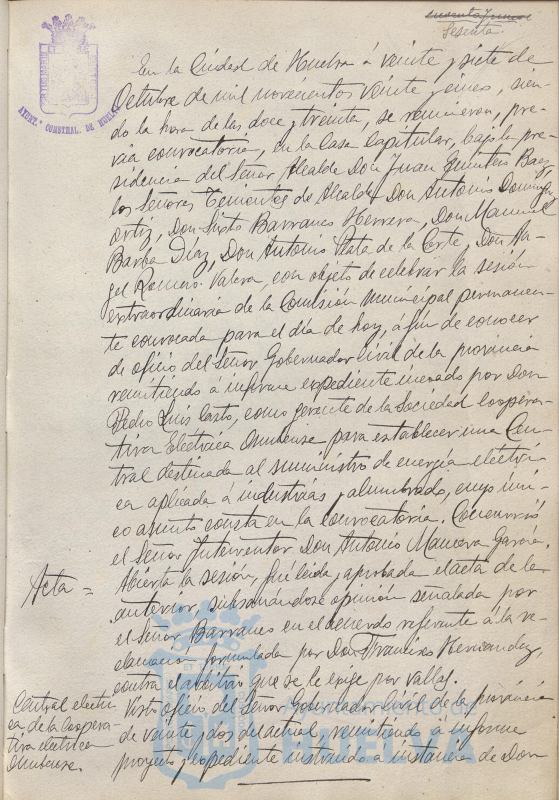 Sesenta
AYUNT.º CONSTNAL. DE HUELVA
En la Ciudad de Huelva á veinte y siete de
Octubre de mil novecientos veinte y cinco, sien-
do la hora de las doce y treinta, se reunieron, pre-
via convocatoria, en la Casa Capitular, bajo la pre-
sidencia del Señor Alcalde Don Juan Quintero Baez,
los Señores Tenientes de Alcalde Don Antonio Domínguez
Ortiz, Don Sixto Barranco Herrera, Don Manuel
Barba Díaz, Don Antonio Plata de la Corte, y Don An-
gel Romero Valera, con objeto de celebrar la sesión
extraordinaria de la Comisión municipal permanen-
te convocada para el dia de hoy, á fin de conocer
de oficio del Señor Gobernador Civil de la provincia
remitiendo á informe expediente incoado por Don
Pedro Luis Casto, como gerente de la Sociedad coopera-
tiva Electrica Onubense para establecer una Cen-
tral destinada al suministro de energia electri-
ca aplicada á industrias y alumbrado, cuyo úni-
co asunto consta en la convocatoria. Concurrió
el Señor Interventor Don Antonio Mancera García.
Acta =
Abierta la sesión, fué leida y aprobada el acta de la
anterior, subsanándose opinión señalada por
el Señor Barranco en el acuerdo referente á la re-
clamación formulada por Don Francisco Hernandez,
contra el arbitrio que se le exige por vallas.
Central electri-
ca de la Coopera-
tiva electrica
Onubense.
Visto oficio del Señor Gobernador Civil de la provincia
de veinte y dos del actual, remitiendo á informe
proyecto y expediente instruido á instancia de Don
Ayuntamiento de
HUELVA